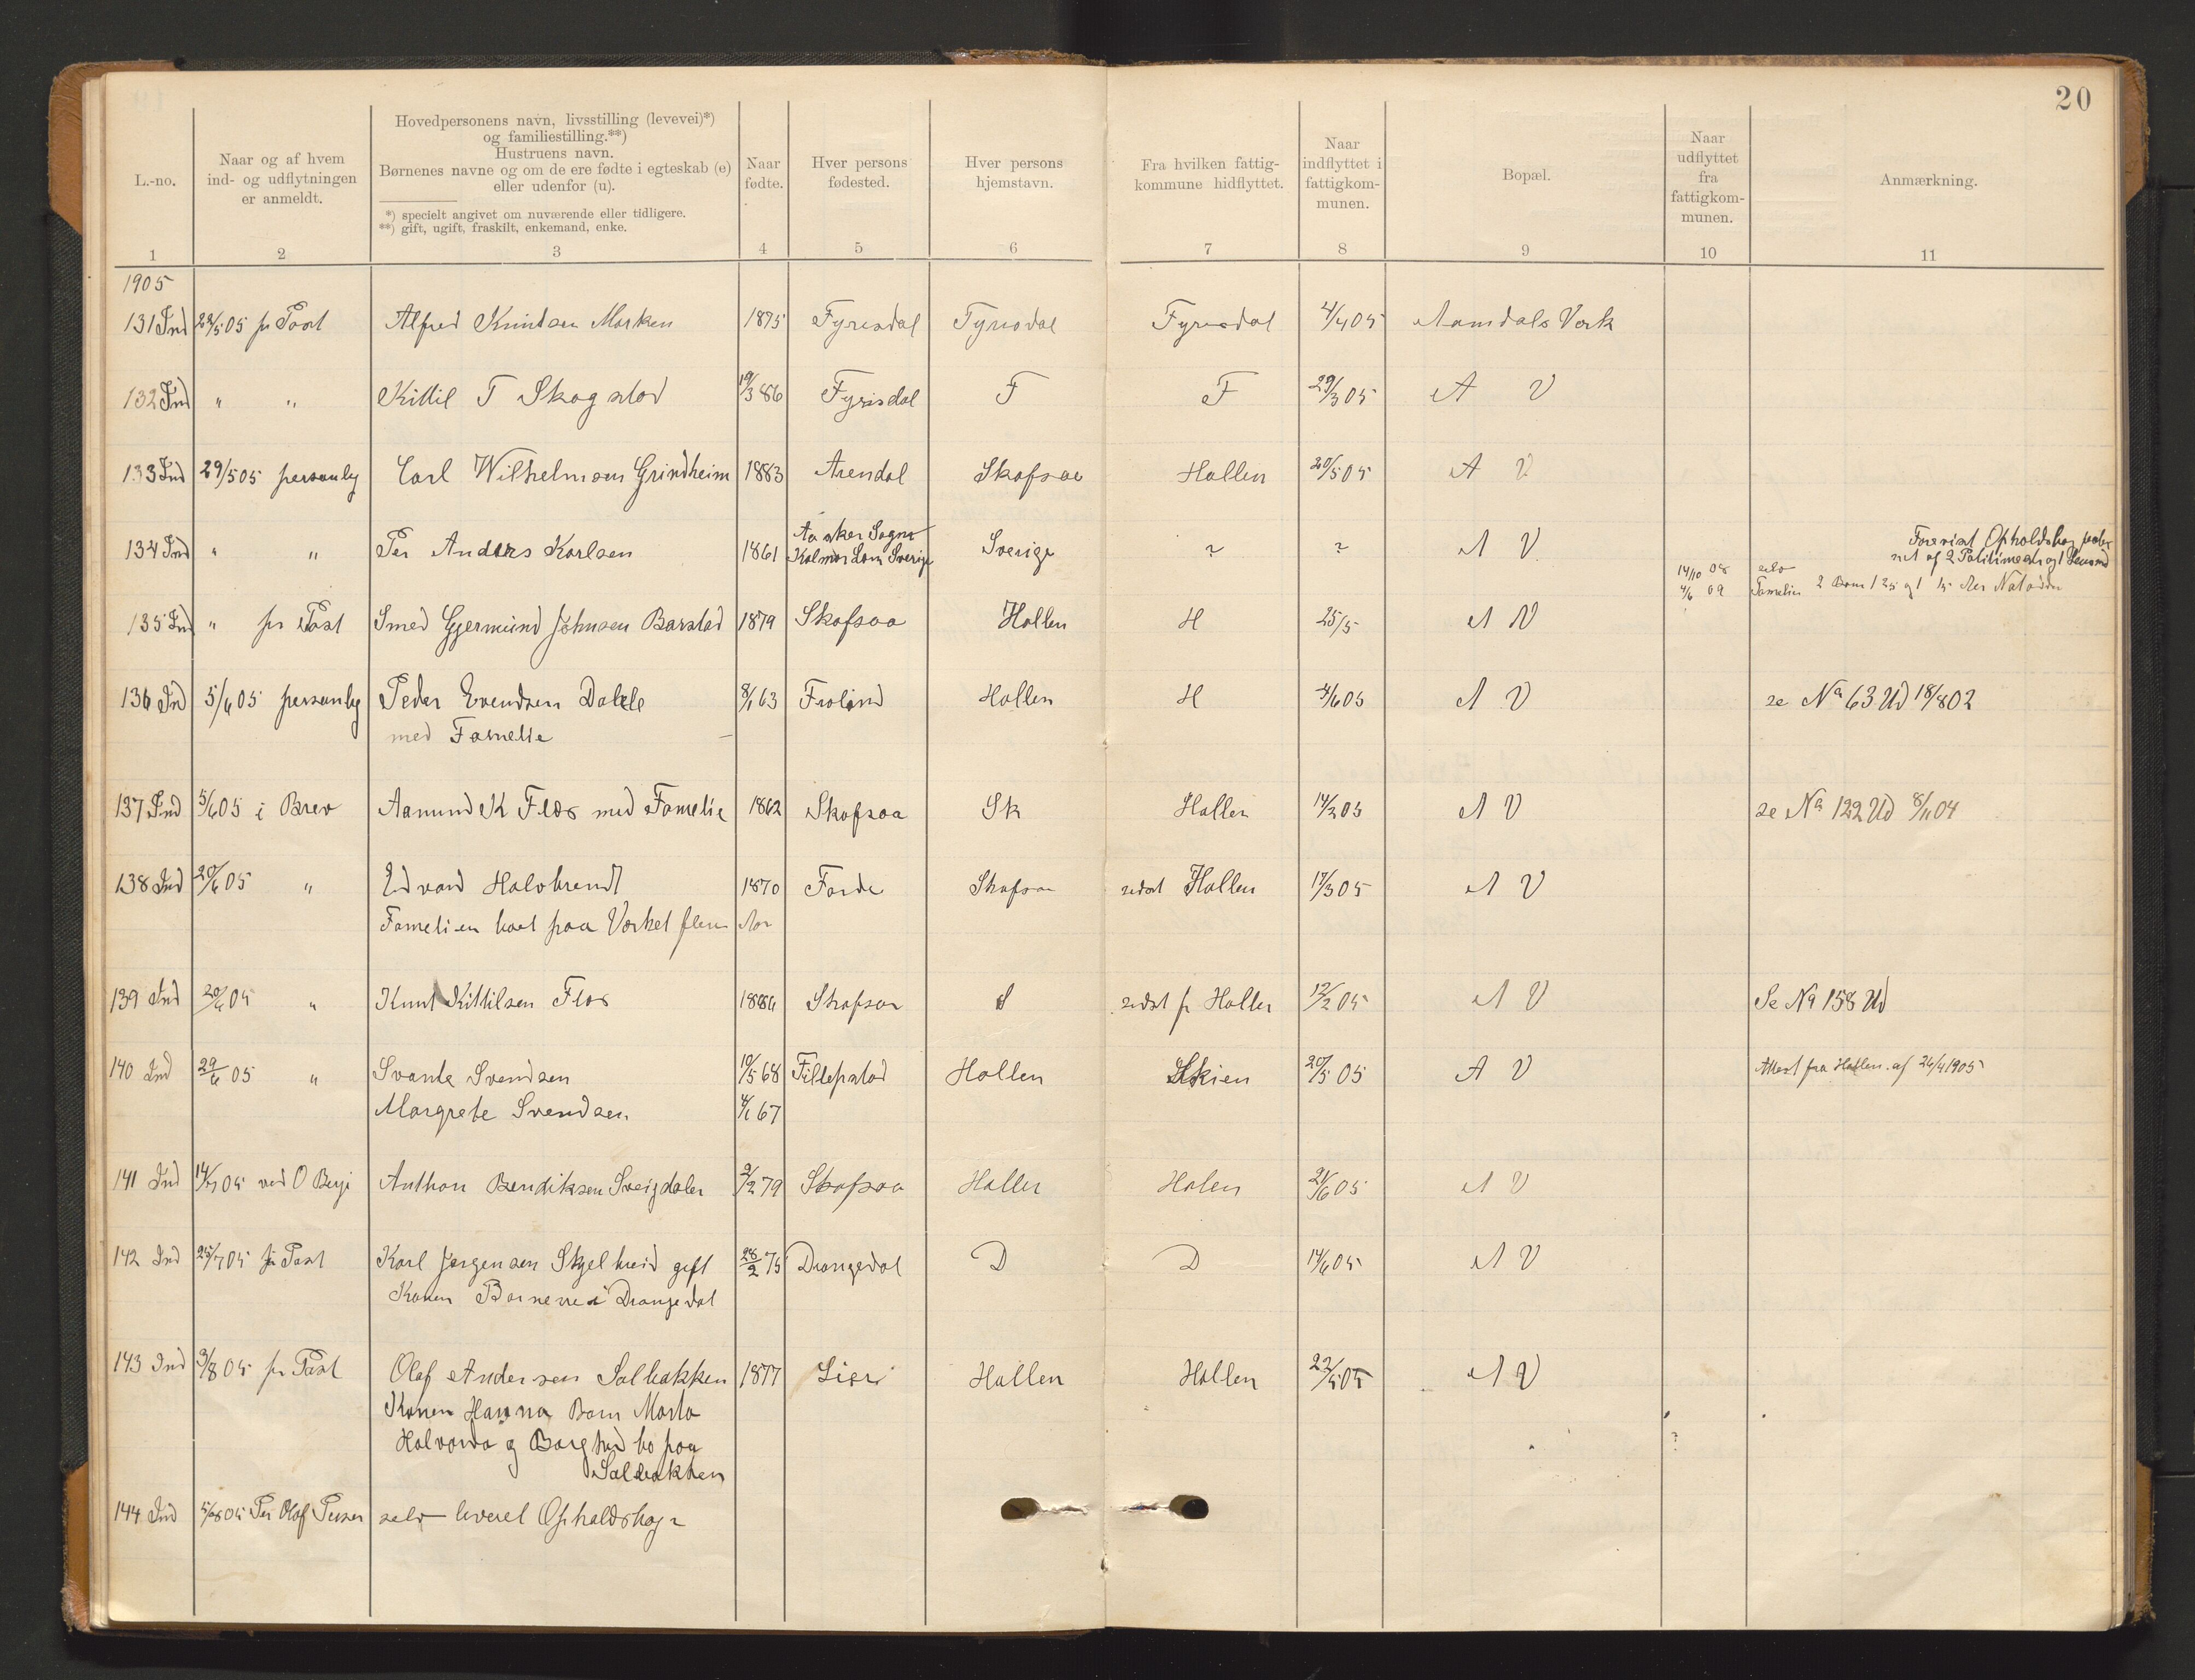 20
L.-no.
Naar og af hvem
ind- og udflytningen
er anmeldt.
Hovedpersonens navn, livsstilling (levevei)*)
og familiestilling.**)
Hustruens navn.
Børnenes navne og om de ere fødte i egteskab (e)
eller udenfor (u).
*) specielt angivet om nuværende eller tidligere.
**) gift, ugift, fraskilt, enkemand, enke.
Naar
fødte.
Hver persons
fødested.
Hver persons
hjemstavn.
Fra hvilken fattig-
kommune hidflyttet.
Naar
indflyttet i
fattigkom-
munen.
Bopæl.
Naar
udflyttet
fra
fattigkom-
munen.
Anmærkning.
1 2 3 4 5 6 7 8 9 10 11
1905
131 Ind 22/5 05 pr Post Alfred Knudsen Morken 1875 Fyrisdal Fyrisdal Fyrisdal 4/4 05 Aamdals Verk
132 Ind " " Kittil T Skogstad 19/3 86 Fyrisdal F F 29/3 05 A V
133 Ind 29/5 05 personlig Carl Wilhelmsen Grindheim 1883 Arendal Skafsaa Hollen 20/5 05 A V
134 Ind " " Per Anders Karlsen 1861 Sogn Kalmar Sverige Sverige ? ? A V
Forevist Opholdsbog
af 2 Politimestr og 1
14/10 08 selv
4/6 09 Familien 2 Børn
135 Ind " pr Post Smed Gjermund Johnsen Barstad 1879 Skafsaa Hollen H 25/5 A V
136 Ind 5/6 05 personlig Peder Evendsen Dalele 8/1 63 Froland Hollen H 4/6 05 A V se No 63 Ud 18/8 02
med Famelie
137 Ind 5/6 05 i Brev Aamund K Flos med Famelie 1862 Skafsaa Sk Hollen 14/3 05 A V se No 122 Ud 8/11 04
138 Ind 20/6 05 " Edvard Halvbrendt 1870 Førde Skafsaa sidst Hollen 17/3 05 A V
Famelien boet paa Verket flere Aar
139 Ind 20/6 05 " Knut Kittilsen Flos Skafsaa S sidst fr Hollen 12/2 05 A V Se No 158 Ud
140 Ind 29/6 05 " Svante Svendsen 10/5 68 Fillepstad Hollen Skien 20/5 05 A V Attest fra Hollen af 26/4 1905
Margrete Svendsen 4/1 67
141 Ind 14/7 05 ved O Berge Anthon Bendiksen Sveigdalen 2/2 79 Skafsaa Hollen Holen 21/6 05 A V
142 Ind 25/7 05 pr Post Karl Jørgensen Skjelbreid gift 28/2 75 Drangedal D D 14/6 05 A V
Konen Børnene i Drangedal
143 Ind 3/8 05 pr Post Olaf Andersen Solbakken 1877 Lier Hollen Hollen 22/5 05 A V
Konen Hanna Barn Marta
Halvorda og Borghild bo paa
Solbakken
144 Ind 5/8 05 Per Olaf selv leveret Opholdsbog